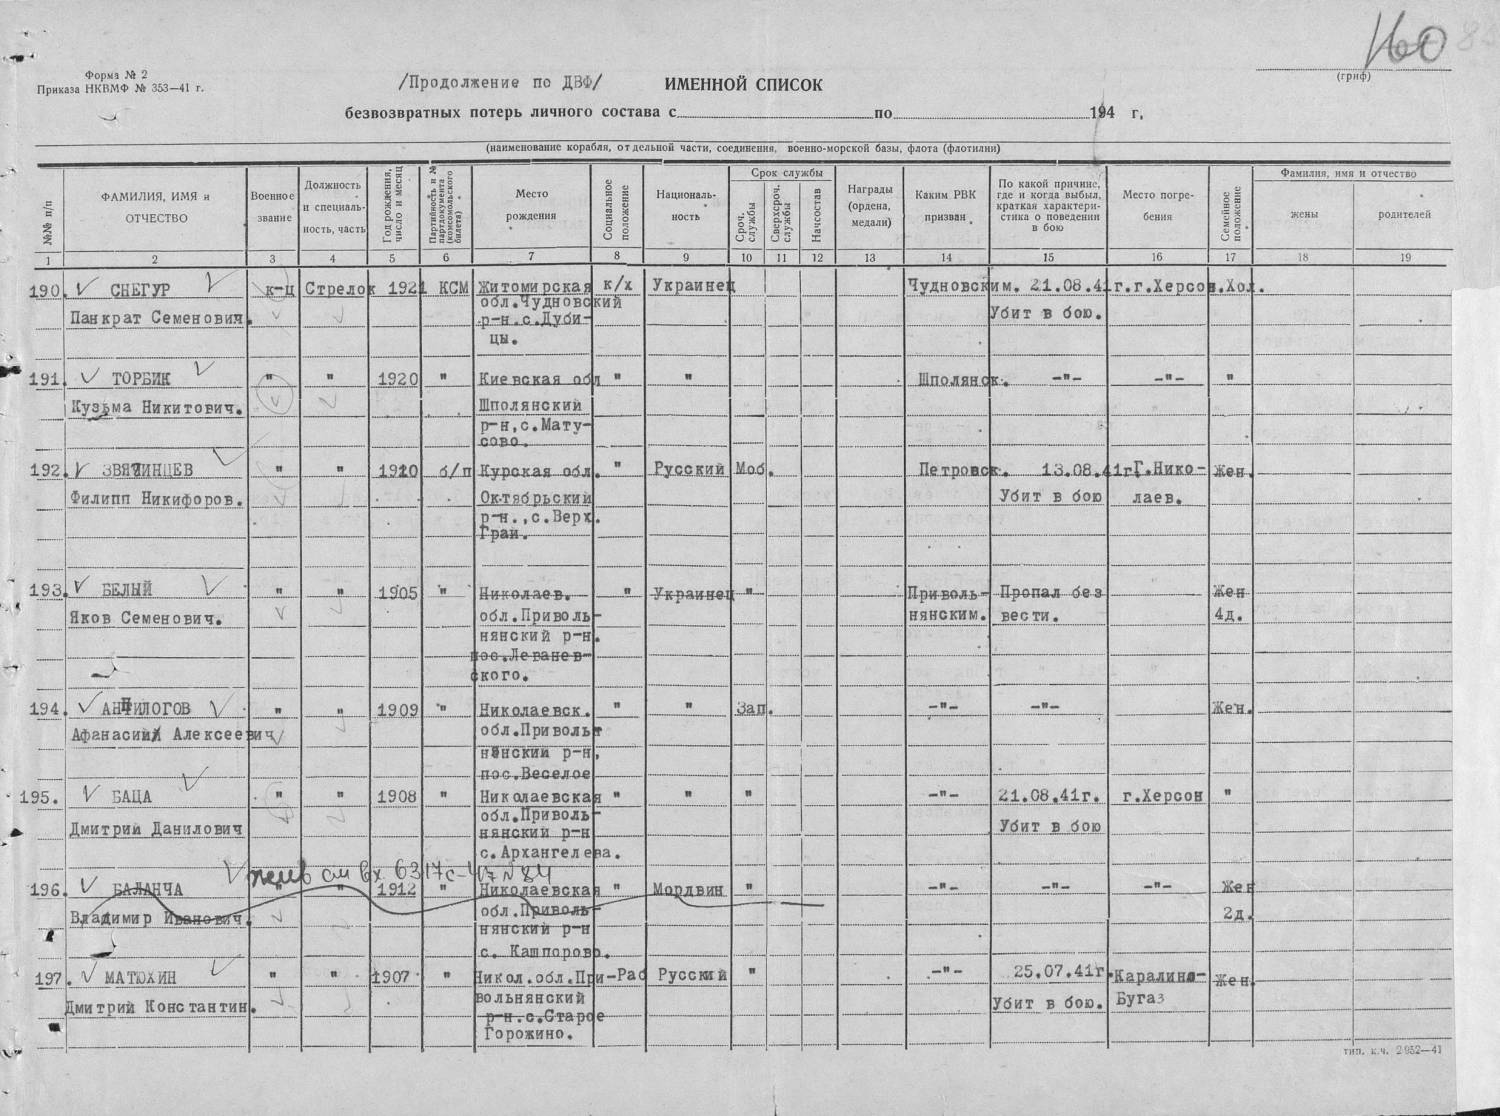 160
Форма № 2
Приказа НКВМФ № 353—41 г.
/Продолжение по ДВФ/ ИМЕННОЙ СПИСОК
(гриф)
безвозвратных потерь личного состава с по 194 г.
(наименование корабля, отдельной части, соединения, военно-морской базы, флота (флотилии)
№№ п/п
ФАМИЛИЯ, ИМЯ и ОТЧЕСТВО
Военное звание
Должность и специальность, часть
Год рождения, число и месяц
Партийность и № партдокумента (комсомольского билета)
Место рождения
Социальное положение
Национальность
Срок службы
Сроч. службы
Сверхсроч. службы
Начсостав
Награды (ордена, медали)
Каким РВК призван
По какой причине, где и когда выбыл, краткая характеристика о поведении в бою
Место погребения
Семейное положение
Фамилия, имя и отчество
жены
родителей
1 2 3 4 5 6 7 8 9 10 11 12 13 14 15 16 17 18 19
190. СНЕГУР к-ц Стрелок 1921 КСМ Житомирская к/х Украинец Чудновским. 21.08.41г. г.Херсон. Хол.
Панкрат Семенович. обл.Чудновский Убит в бою.
р-н.с.Дуби-
цы.
191. ТОРБИК " " 1920 " Киевская обл " " Шполянск. -"- -"- "
Кузьма Никитович. Шполянский
р-н,с.Мату-
сово.
192. ЗВЯГИНЦЕВ " " 1910 б/п Курская обл. " Русский Моб. Петровск. 13.08.41г. Г.Нико- Жен.
Филипп Никифоров. Октябрьский Убит в бою лаев.
р-н.,с.Верх.
Граи.
193. БЕЛЫЙ " " 1905 " Николаев. " Украинец " Приволь- Пропал без Жен
Яков Семенович. обл.Приволь- нянским. вести. 4д.
нянский р-н.
пос.Леванев-
ского.
194. АНПИЛОГОВ " " 1909 " Николаевск. " " Зап. -"- -"- Жен.
Афанасий Алексеевич обл.Приволь-
нянский р-н,
пос.Веселое
195. БАЦА " " 1908 " Николаевская " " " -"- 21.08.41г. г.Херсон "
Дмитрий Данилович обл.Приволь- Убит в бою
нянский р-н
с.Архангелева.
жив см вх 6317с-47 № 84
196. БАЛАНЧА " " 1912 " Николаевская " Мордвин " -"- -"- -"- Жен
Владимир Иванович. обл.Приволь- 2д.
нянский р-н
с. Кашпорово.
197. МАТЮХИН " " 1907 " Никол.обл.При- Раб Русский " -"- 25.07.41г. Каралино- Жен.
Дмитрий Константин. вольнянский Убит в бою. Бугаз
р-н.с.Старое
Горожино.
тип. к.ч. 2952—41